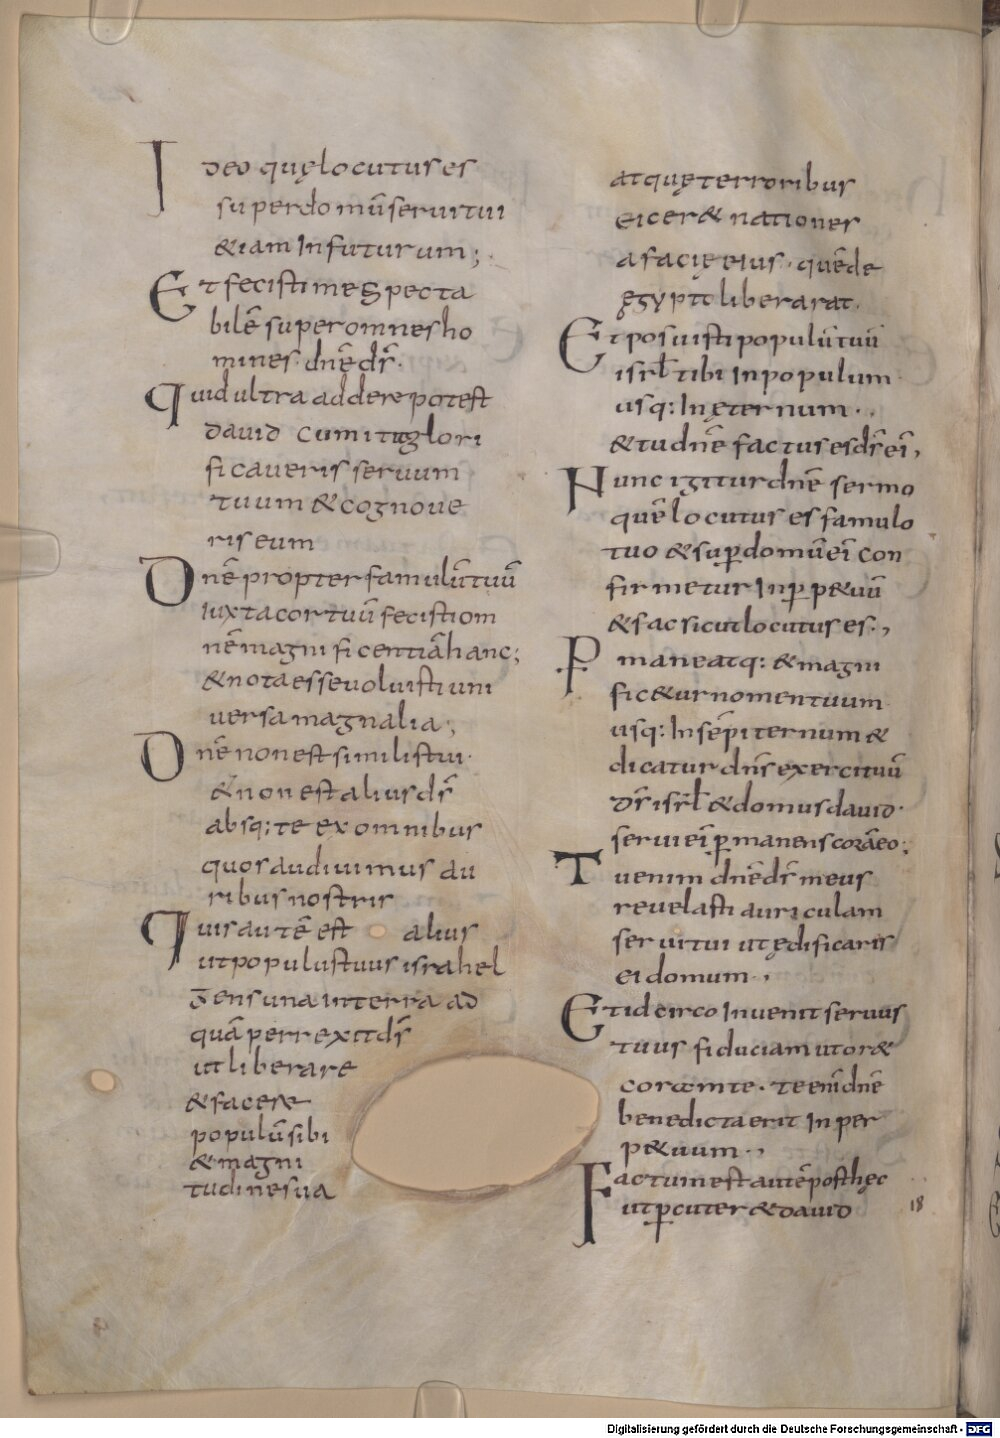 Ideo quę locutus es
super domū serui tui
& iam In futurum;
Et fecisti me specta
bilē super omnes ho
mines. dnē ds̄.
Quid ultra addere potest
dauid cum ita glori
ficaueris seruum
tuum & cognoue
ris eum
Dnē propter famulū tuū
iuxta cor tuū fecisti om
nē magnificentiā hanc;
& nota esse uoluisti uni
uersa magnalia;
Dnē non est similis tui.
& non est alius ds̄
absq; te ex omnibus
quos audiuimus au
ribus nostris
Quis autē est alius
ut populus tuus israhel
gens una in terra ad
quā perrexit ds̄
ut liberare
& facere
populū sibi
& magni
tudine sua
atquę terroribus
eicer& nationes
a facię eius. quē de
ęgypto liberarat.
Et posuisti populū tuū
isrł tibi In populum
usq: In ęternum.
& tu dnē factus es ds̄ ei,
Nunc igitur dnē sermo
quē locutus es famulo
tuo & sup̱ domū ei con
firmetur In p̱p&uū
& fac sicut locutus es.,
P̱maneatq: & magni
fic&ur nomen tuum
usq: In sēpiternum &
dicatur dns̄ exercituū
ds̄ isrł & domus dauid.
serui ei p̱manens corā eo;
Tu enim dnē ds̄ meus
reuelasti auriculam
serui tui ut ędificaris
ei domum.,
Et idcirco Inuenit seruus
tuus fiduciam ut or&
coram te. tu enī dnē
benedicta erit In per
p&uum.,
Factum est autē post hęc
ut p̱cuter& dauid
18
Digitalisierung gefördert durch die Deutsche Forschungsgemeinschaft - DFG